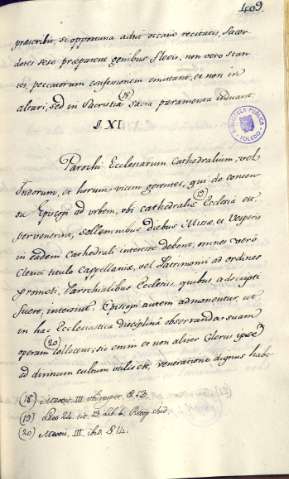 409
praescribit, si opportuna adhuc occasio recitatis, Sacer
dotes sese praeparent genibus flexis, non vero stan
tes peccatorum confessionem emittant, et non in
altari, sed in Sacristia (18) Sacra paramenta induant.
§ XI
Parochi Ecclesiarum Cathedralium, vel
horum vicem gerentes, qui de consen
su Episcopi ad urbem, ubi cathedralis (19) Ecclesia est,
pervenerint, sollemnibus diebus Missae et Vesperis
in eadem Cathedrali interesse debent, omnes vero
Clerici titulo Cappellaniae, vel Patrimonii ad ordines
promoti, Parochialibus Ecclesiis, quibus adscripti
fuere, intersint. Episcopi autem admonentur, ut
in hac Ecclesiastica disciplina observanda suam
operam (20) collocent, sic enim et non aliter Clerus
ad divinum cultum utilis est, veneratione dignus habe
(18)
(19)
(20) III. ibid. § 14.
BIBLIOTECA PUBLICA
TOLEDO